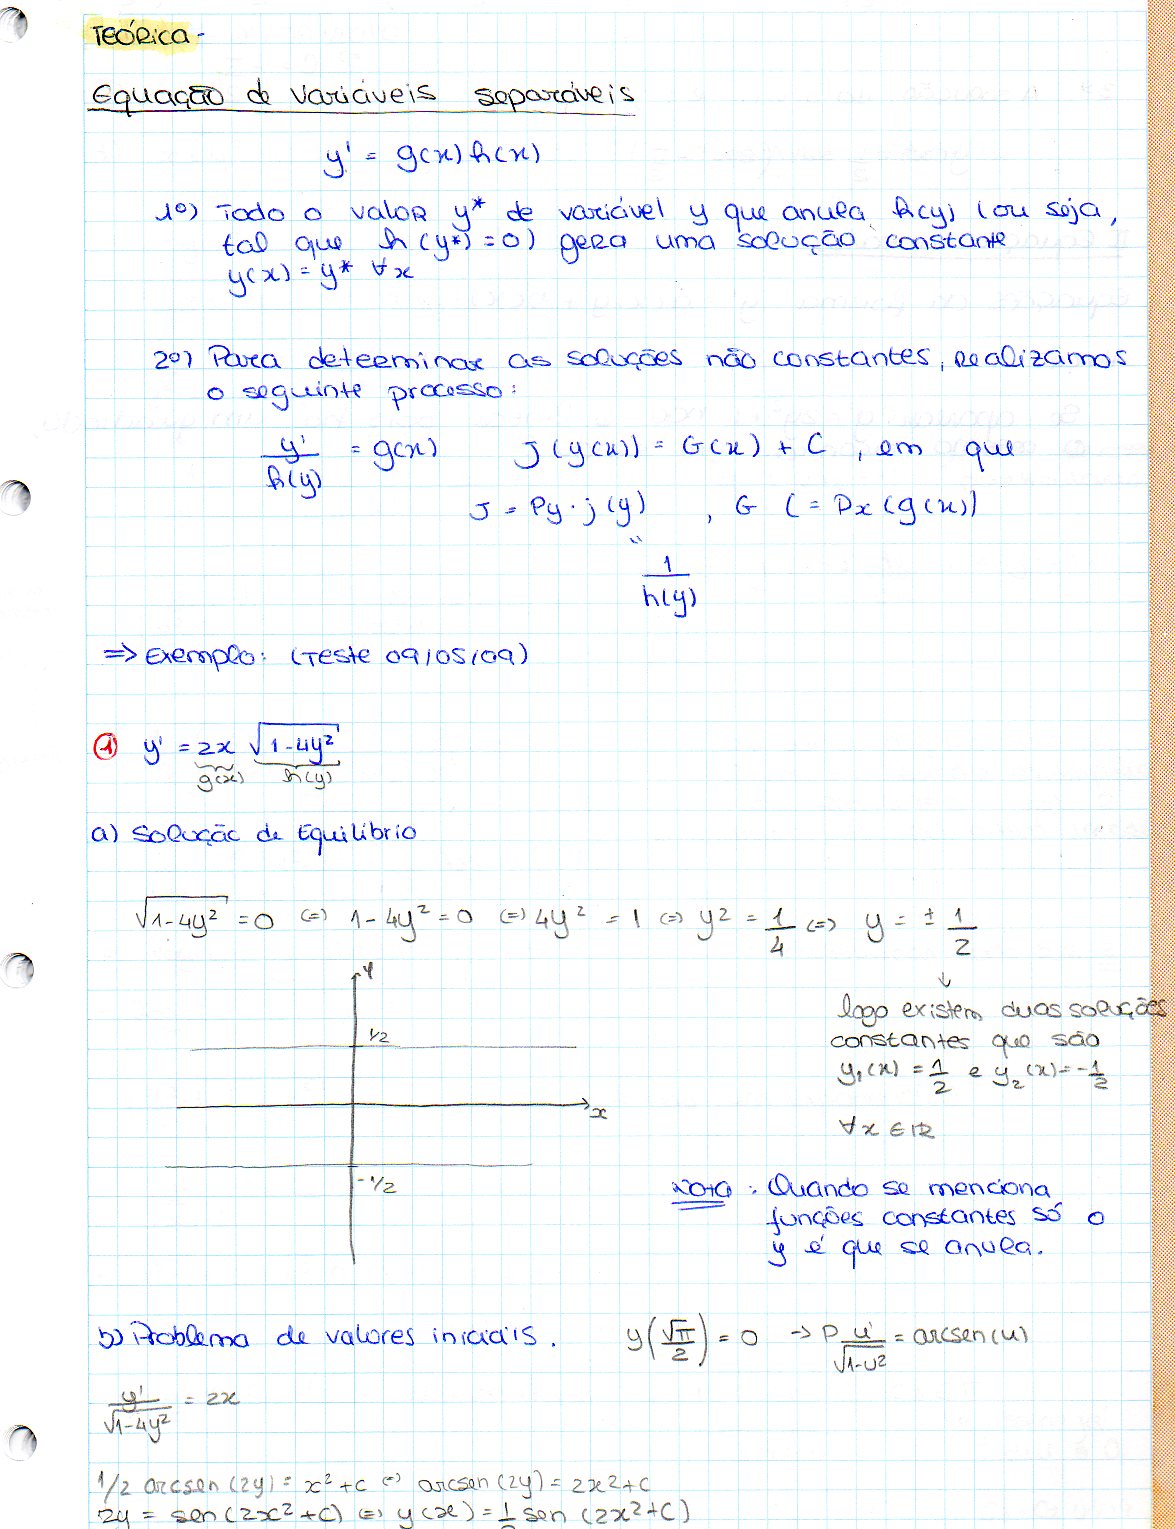 TEÓRICA -
Equação de variáveis separáveis
y' = g(x) h(x)
1º) Todo o valor y* de variável y que anula h(y) (ou seja,
tal que h(y*) = 0) gera uma solução constante
y(x) = y* ∀x
2º) Para determinar as soluções não constantes, realizamos
o seguinte processo:
y'/h(y) = g(x) J(y(x)) = G(x) + C, em que
J = Py·j(y) , G (= Px(g(x))
"
1/h(y)
=> Exemplo: (Teste 09/05/09)
① y' = 2x √(1-4y²)
g(x) h(y)
a) Solução de Equilíbrio
√(1-4y²) = 0 (=) 1-4y² = 0 (=) 4y² = 1 (=) y² = 1/4 (=) y = ± 1/2
↓
logo existem duas soluções
constantes que são
y₁(x) = 1/2 e y₂(x) = -1/2
∀x ∈ IR
y
1/2
x
-1/2
Nota: Quando se menciona
funções constantes só o
y é que se anula.
b) Problema de valores iniciais. y(√π/2) = 0 → P u'/√(1-u²) = arcsen(u)
y'/√(1-4y²) = 2x
1/2 arcsen(2y) = x²+c (=) arcsen(2y) = 2x²+c
2y = sen(2x²+c) (=) y(x) = 1/2 sen(2x²+c)